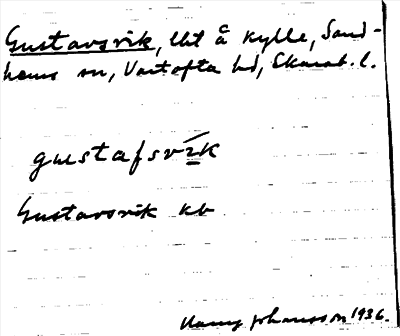 Gustavsvik, lht å Kylle, Sand-
hems sn, Vartofta hd, Skarab. l.
gustafsvik
Gustavsvik kb
Harry Johansson 1936.